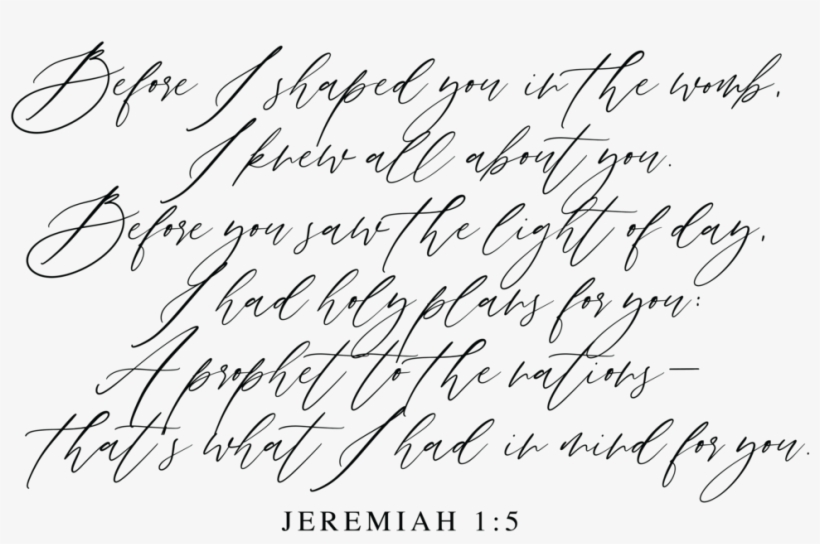 Before I shaped you in the womb,
I knew all about you.
Before you saw the light of day,
I had holy plans for you:
A prophet to the nations—
that's what I had in mind for you.
JEREMIAH 1:5